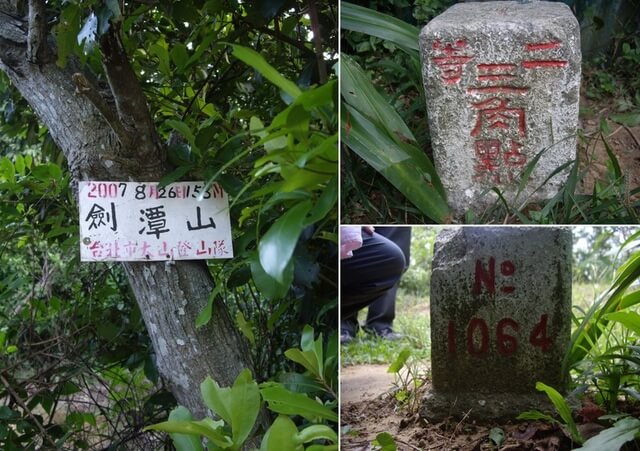 2007 8月26日153M
劍潭山
台北市大山登山隊
二等
三角點
No
1064